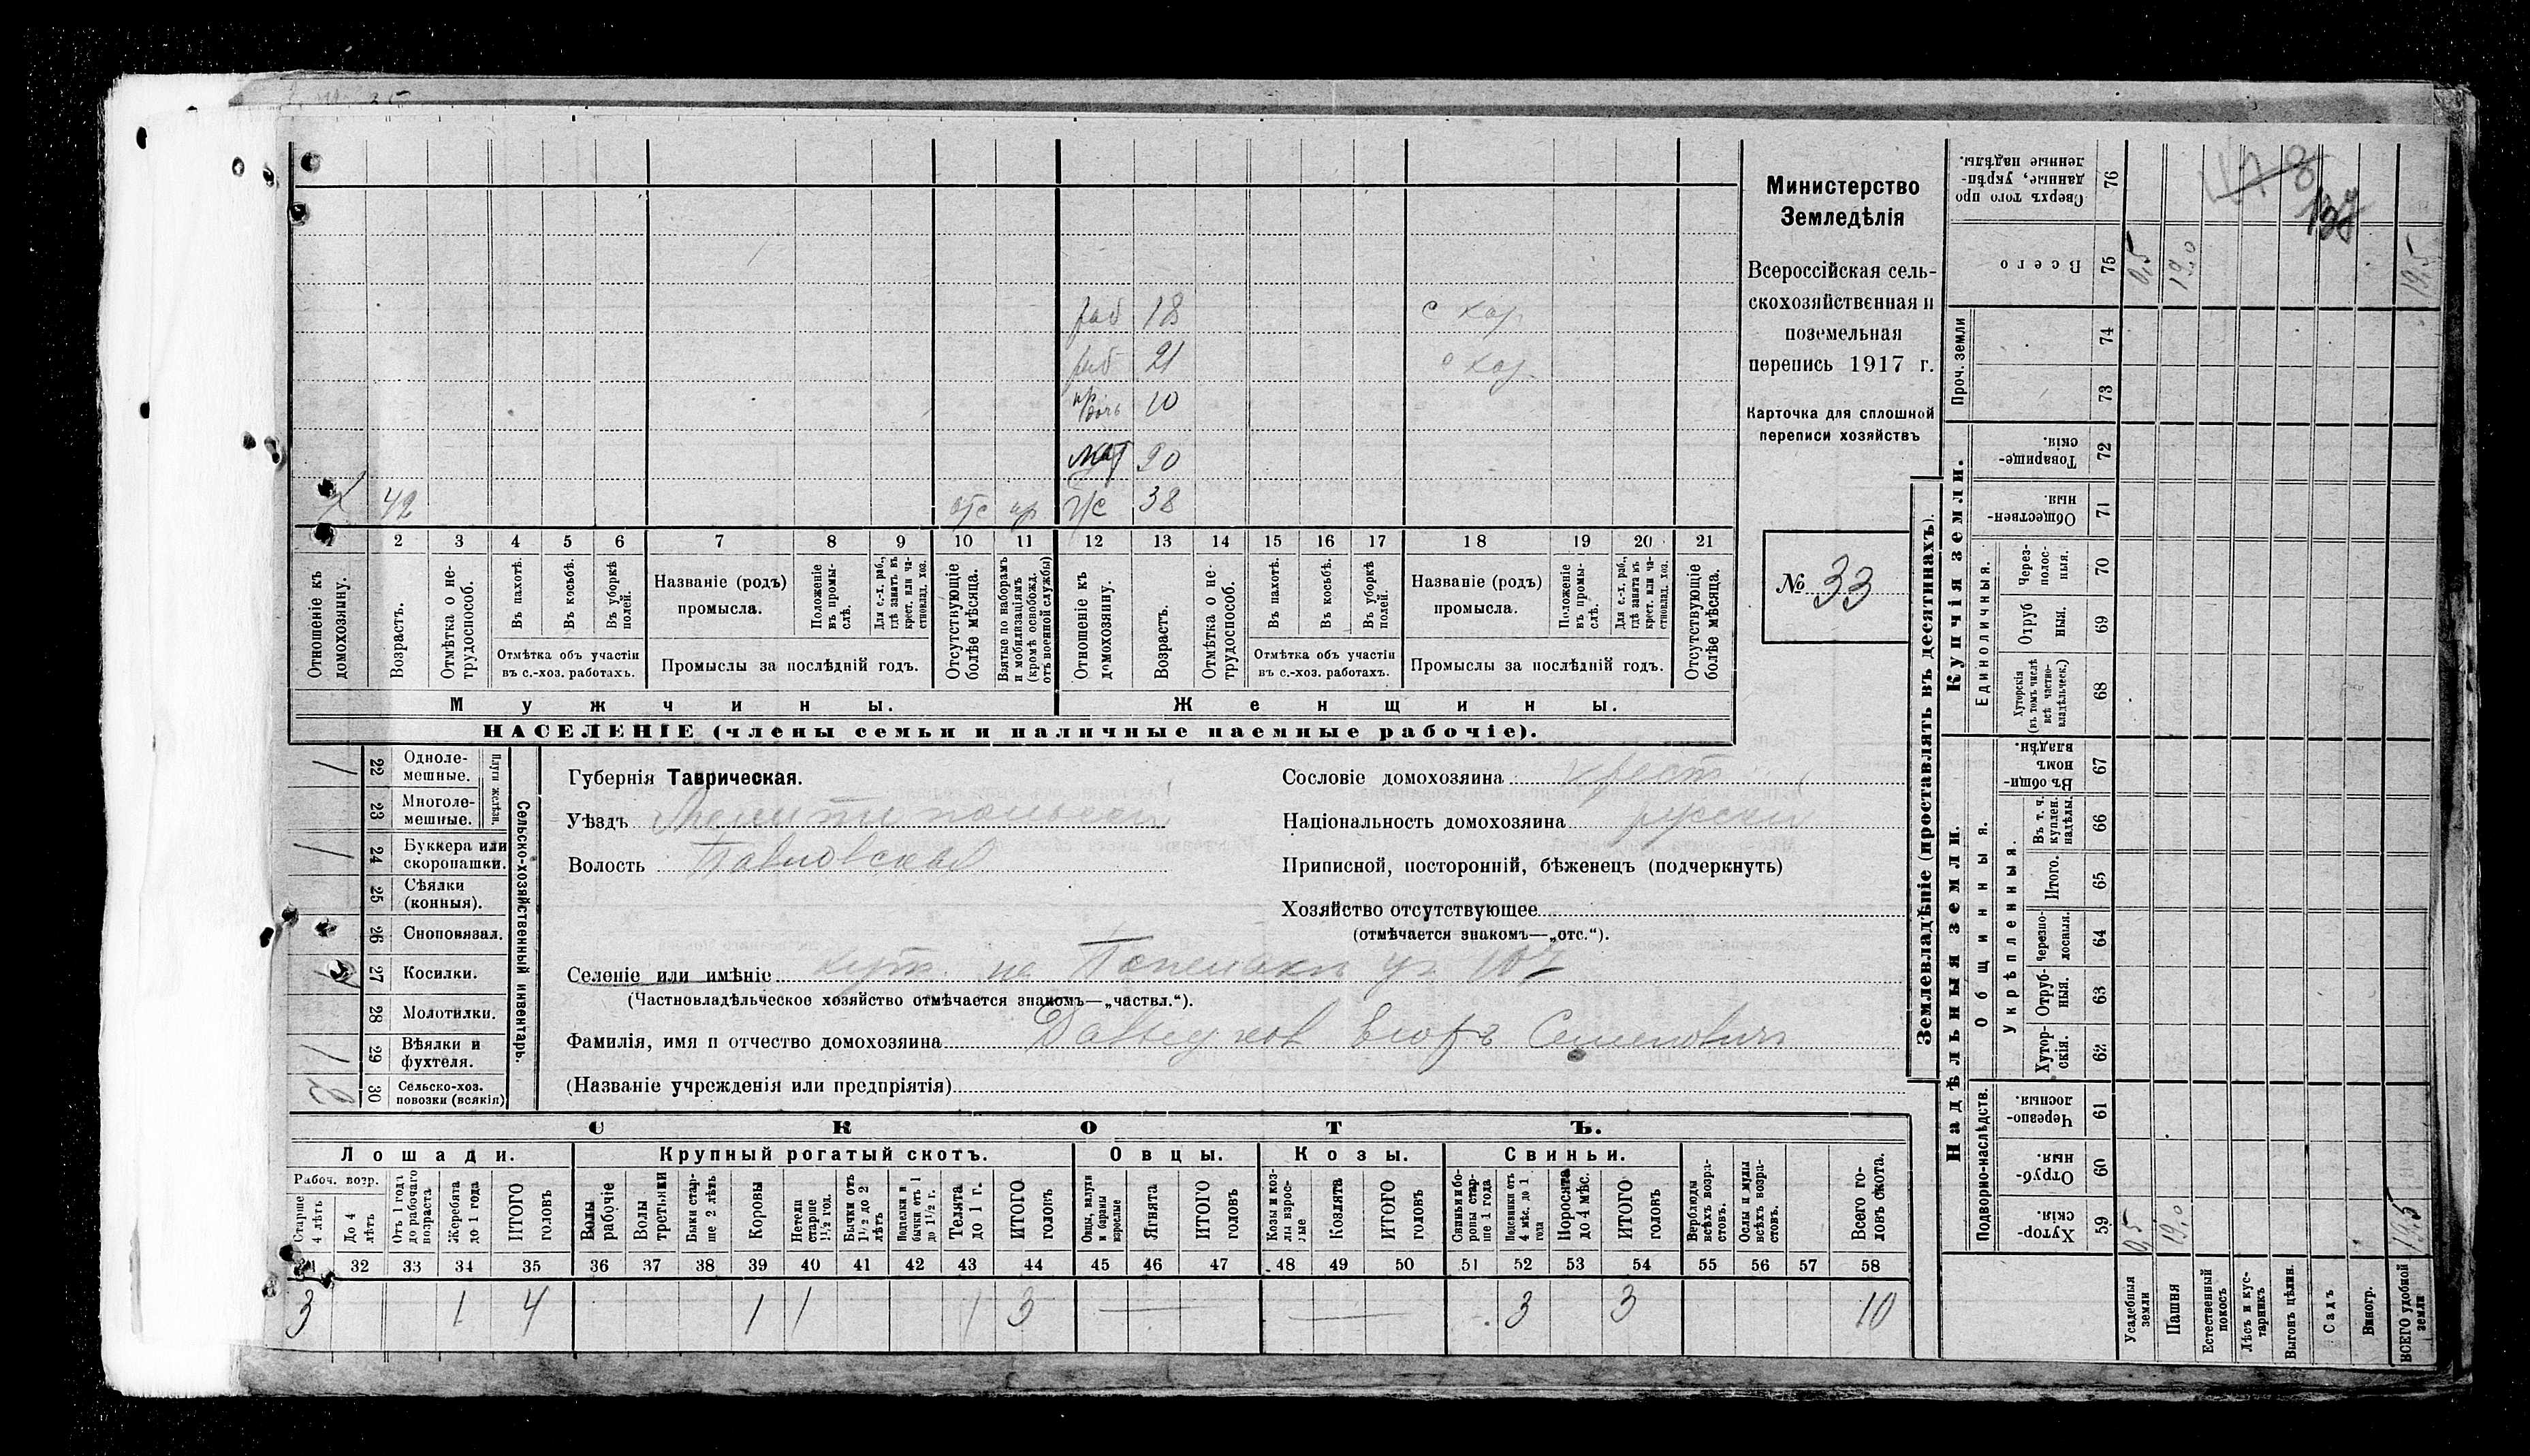 Министерство
Земледѣлія
Всероссійская сель-
скохозяйственная и
поземельная
перепись 1917 г.
Карточка для сплошной
переписи хозяйствъ
№ 33
раб 18 с хоз
раб 21 с хоз
дочь 10
мат 90
х 42 отс ж 38
1 2 3 4 5 6 7 8 9 10 11 12 13 14 15 16 17 18 19 20 21
Отношеніе къ домохозяину.
Возрастъ.
Отмѣтка о не-трудоспособ.
Въ пахотѣ.
Въ косьбѣ.
Въ уборкѣ полей.
Отмѣтка объ участіи
въ с.-хоз. работахъ.
Названіе (родъ)
промысла.
Положеніе въ промы-слѣ.
Для с.-х. раб., гдѣ занятъ въ крест. или ча-стновлад. хоз.
Промыслы за послѣдній годъ.
Отсутствующіе болѣе мѣсяца.
Взятые по наборамъ и мобилизаціямъ (кромѣ освобожд. отъ военной службы)
Отношеніе къ домохозяину.
Возрастъ.
Отмѣтка о не-трудоспособ.
Въ пахотѣ.
Въ косьбѣ.
Въ уборкѣ полей.
Отмѣтка объ участіи
въ с.-хоз. работахъ.
Названіе (родъ)
промысла.
Положеніе въ промы-слѣ.
Для с.-х. раб., гдѣ занята въ крест. или ча-стновлад. хоз.
Промыслы за послѣдній годъ.
Отсутствующіе болѣе мѣсяца.
Мужчины. Женщины.
НАСЕЛЕНІЕ (члены семьи и наличные наемные рабочіе).
Сельско-хозяйственный инвентарь.
Плуги желѣзн.
/ 22 Одноле-мешные.
23 Многоле-мешные.
/ 24 Буккера или скоропашки.
25 Сѣялки (конныя).
26 Сноповязал.
27 Косилки.
28 Молотилки.
/ 29 Вѣялки и фухтеля.
2 30 Сельско-хоз. повозки (всякія)
Губернія Таврическая.
Уѣздъ Мелитопольскій
Волость Павловская
Сословіе домохозяина крест
Національность домохозяина русскій
Приписной, посторонній, бѣженецъ (подчеркнуть)
Хозяйство отсутствующее
(отмѣчается знакомъ—„отс.“).
Селеніе или имѣніе хут. на
(Частновладѣльческое хозяйство отмѣчается знакомъ—„частвл.“).
Фамилія, имя и отчество домохозяина Давыдков Егоръ Семеновичъ
(Названіе учрежденія или предпріятія)
СКОТЪ.
Лошади. Крупный рогатый скотъ. Овцы. Козы. Свиньи.
Рабоч. возр.
Старше 4 лѣтъ
До 4 лѣтъ
Отъ 1 года до рабочаго возраста
Жеребята до 1 года
ИТОГО головъ
Волы рабочіе
Волы третьяки
Быки стар-ше 2 лѣтъ
Коровы
Нетели старше 1½ год.
Бычки отъ 1½ до 2 лѣтъ
Подтелки и бычки отъ 1 до 1½ г.
Телята до 1 г.
ИТОГО головъ
Овцы, валухи и бараны взрослые
Ягнята
ИТОГО головъ
Козы и коз-лы взрос-лые
Козлята
ИТОГО головъ
Свиньи и бо-ровы стар-ше 1 года
Подсвинки отъ 4 мѣс. до 1 года
Поросята до 4 мѣс.
ИТОГО головъ
Верблюды всѣхъ возра-стовъ.
Ослы и мулы всѣхъ возра-стовъ.
Всего го-ловъ скота.
31 32 33 34 35 36 37 38 39 40 41 42 43 44 45 46 47 48 49 50 51 52 53 54 55 56 57 58
3 1 4 1 1 1 3 — — 3 3 10
Землевладѣніе (проставлять въ десятинахъ).
Надѣльныя земли. Купчія земли. Проч. земли
Подворно-наслѣдств.
Общинныя.
Укрѣпленныя.
Единоличныя.
Хутор-скія. 59
Отруб-ныя. 60
Черезпо-лосныя. 61
Хутор-скія. 62
Отруб-ныя. 63
Черезпо-лосныя. 64
Итого. 65
Въ т. ч. куплен. надѣлы. 66
Въ общин-номъ владѣн. 67
Хуторскія (въ томъ числѣ всѣ частно-владѣльческ.) 68
Отруб ныя. 69
Через-полос-ныя. 70
Обществен-ныя. 71
Товарище-скія. 72
73
74
Всего 75
Сверхъ того про данные, укрѣп-ленные надѣлы. 76
Усадебныя земли 0,5 0,5
Пашня 19,0 19,0
Естественный покосъ
Лѣсъ и кус-тарникъ
Выгонъ цѣлин.
Садъ
Виногр.
ВСЕГО удобной земли 19,5 19,5